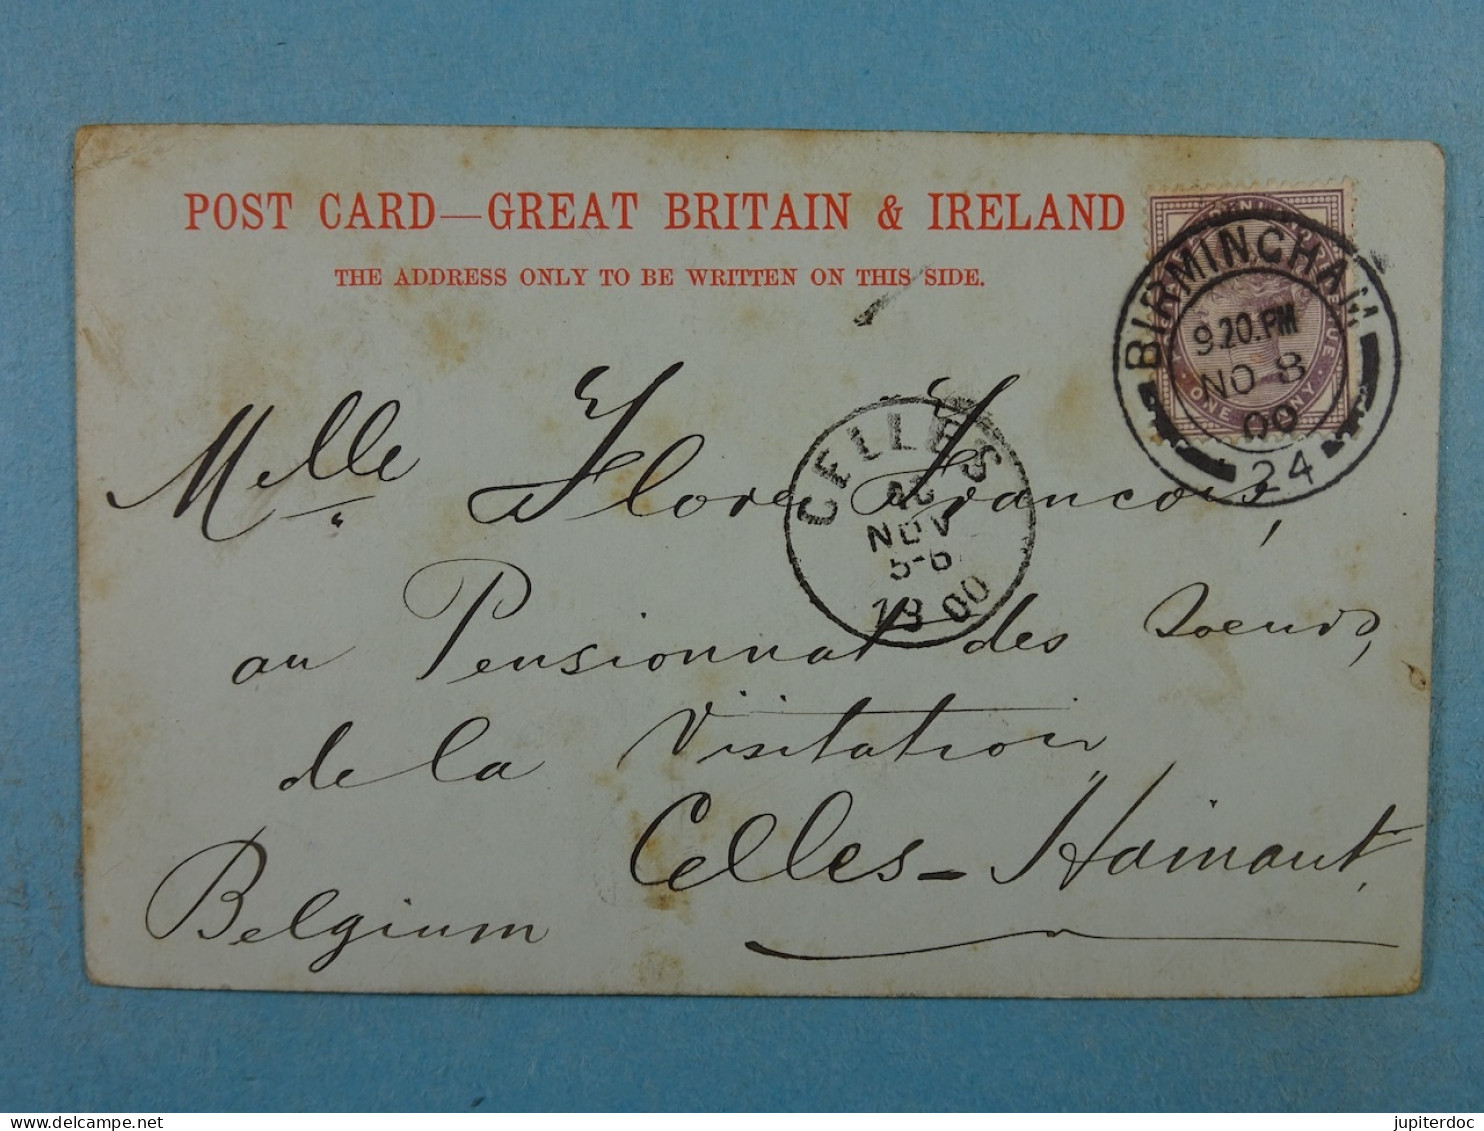 POST CARD—GREAT BRITAIN & IRELAND
THE ADDRESS ONLY TO BE WRITTEN ON THIS SIDE.
BIRMINGHAM
9.20.PM
NO 8
00
24
ONE PENNY
CELLES
NOV
5-6
1900
Melle Flore Francois,
au Pensionnat des Soeurs,
de la Visitation
Celles-Hainaut,
Belgium
jupiterdoc